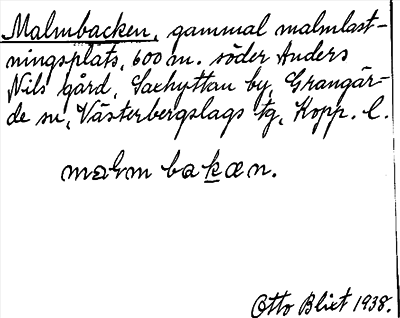 Malmbacken, gammal malmlast-
ningsplats, 600 m. söder Anders
Nils gård, Saxhyttan by, Grangär-
de sn, Västerbergslags tg, Kopp. l.
malm bakæn.
Otto Blixt 1938.